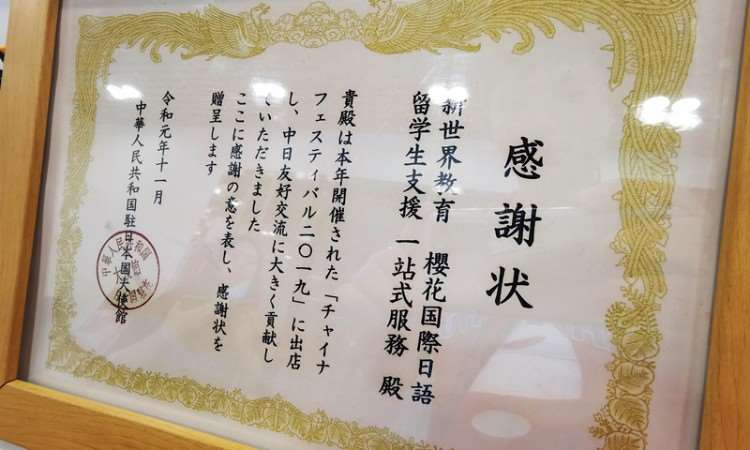 感謝状
新世界教育　櫻花国際日語
留学生支援　一站式服務　殿
貴殿は本年開催された「チャイナ
フェスティバル二〇一九」に出店
し、中日友好交流に大きく貢献し
ていただきました
ここに感謝の意を表し、感謝状を
贈呈します
令和元年十一月
中華人民共和国駐日本国大使館